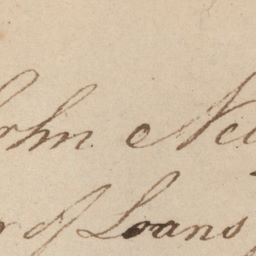 John Ne
r of Loans